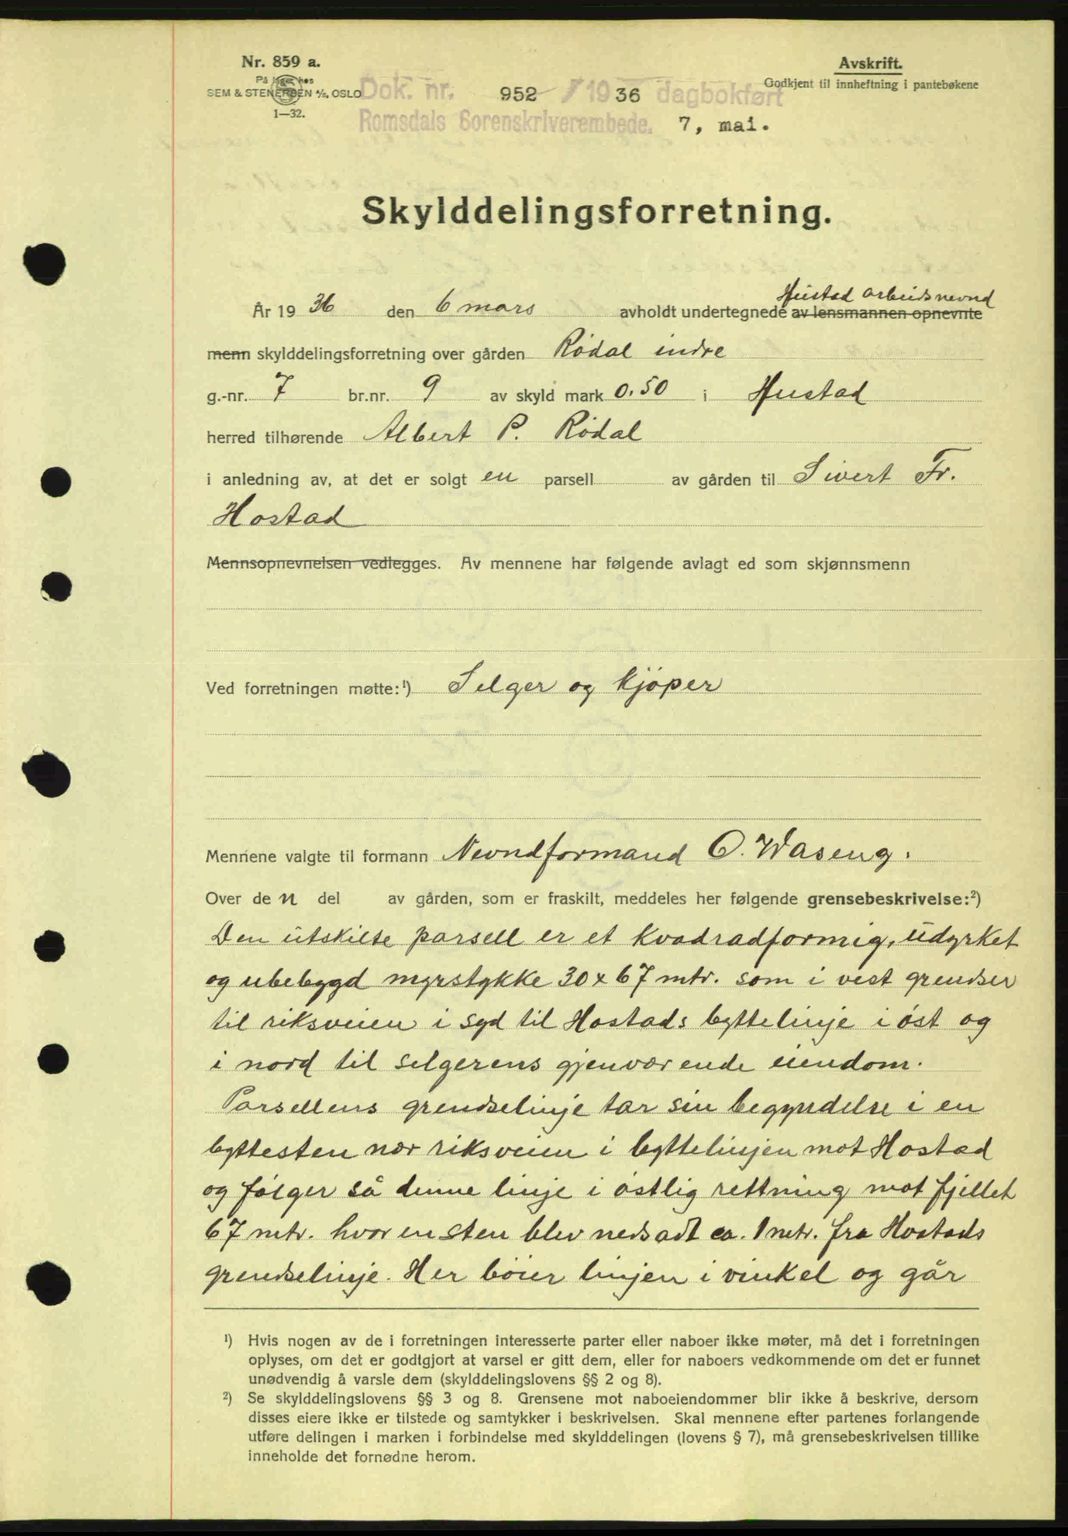 Nr. 859 a.
På lager hos
SEM & STENERSEN A/S, OSLO
1—32.
Dok. nr. 952 / 1936 dagbokført
Romsdals Sorenskriverembede. 7, mai.
Avskrift.
Godkjent til innheftning i pantebøkene
Skylddelingsforretning.
Hustad arbeidsnevnd
År 1936 den 6 mars avholdt undertegnede av lensmannen opnevnte
menn skylddelingsforretning over gården Rødal indre
g.-nr. 7 br.nr. 9 av skyld mark 0.50 i Hustad
herred tilhørende Albert P. Rødal
i anledning av, at det er solgt en parsell av gården til Sivert Fr.
Hostad
Mennsopnevnelsen vedlegges. Av mennene har følgende avlagt ed som skjønnsmenn
Ved forretningen møtte:¹) Selger og kjøper
Mennene valgte til formann Nevndformand O. Waseng.
Over den del av gården, som er fraskilt, meddeles her følgende grensebeskrivelse:²)
Den utskilte parsell er et kvadradformig, udyrket
og ubebygd myrstykke 30 x 67 mtr. som i vest grendser
til riksveien i syd til Hostads byttelinje i øst og
i nord til selgerens gjenværende eiendom.
Parsellens grendselinje tar sin begyndelse i en
byttesten nær riksveien i byttelinjen mot Hostad
og følger så denne linje i østlig rettning mot fjellet
67 mtr. hvor en sten blev nedsadt ca. 1 mtr. fra Hostads
grendselinje. Her bøier linjen i vinkel og går
¹) Hvis nogen av de i forretningen interesserte parter eller naboer ikke møter, må det i forretningen
oplyses, om det er godtgjort at varsel er gitt dem, eller for naboers vedkommende om det er funnet
unødvendig å varsle dem (skylddelingslovens §§ 2 og 8).
²) Se skylddelingslovens §§ 3 og 8. Grensene mot naboeiendommer blir ikke å beskrive, dersom
disses eiere ikke er tilstede og samtykker i beskrivelsen. Skal mennene efter partenes forlangende
utføre delingen i marken i forbindelse med skylddelingen (lovens § 7), må grensebeskrivelsen tillike
inneholde det fornødne herom.